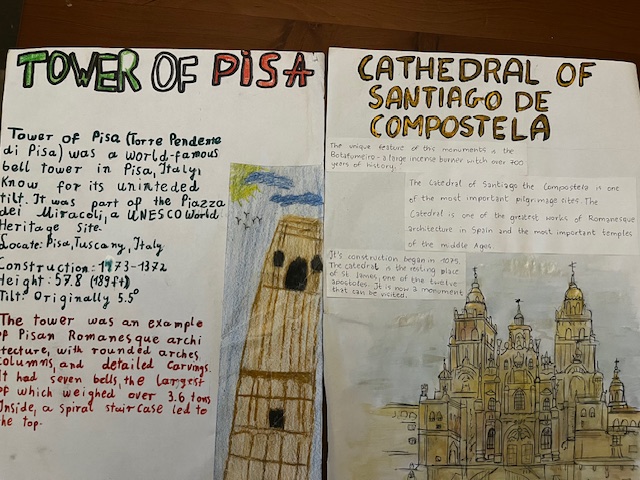 TOWER OF PISA
Tower of Pisa (Torre Pendente
di Pisa) was a world-famous
bell tower in Pisa, Italy,
Know for its uninteded
tilt. It was part of the Piazza
dei Miracoli, a UNESCO World
Heritage Site.
Locate: Pisa, Tuscany, Italy
Construction: 1173-1372
Height: 57.8 (189ft)
Tilt: Originally 5.5°
The tower was an example
of Pisan Romanesque archi
tecture, with rounded arches,
columns, and detailed carvings.
It had seven bells, the largest
of which weighed over 3.6 tons
Inside, a spiral staircase led to
the top.
CATHEDRAL OF
SANTIAGO DE
COMPOSTELA
The unique feature of this monuments is the
Botafumeiro - a large incense burner witch over 700
years of history.
The Catedral of Santiago the Compostela is one
of the most important pilgrimage cites. The
Catedral is one of the greatest works of Romanesque
architecture in Spain and the most important temples
of the middle Ages.
It's construction began in 1075.
The catedral is the resting place
of St James, one of the twelve
apostoles. It is now a monument
that can be visited.